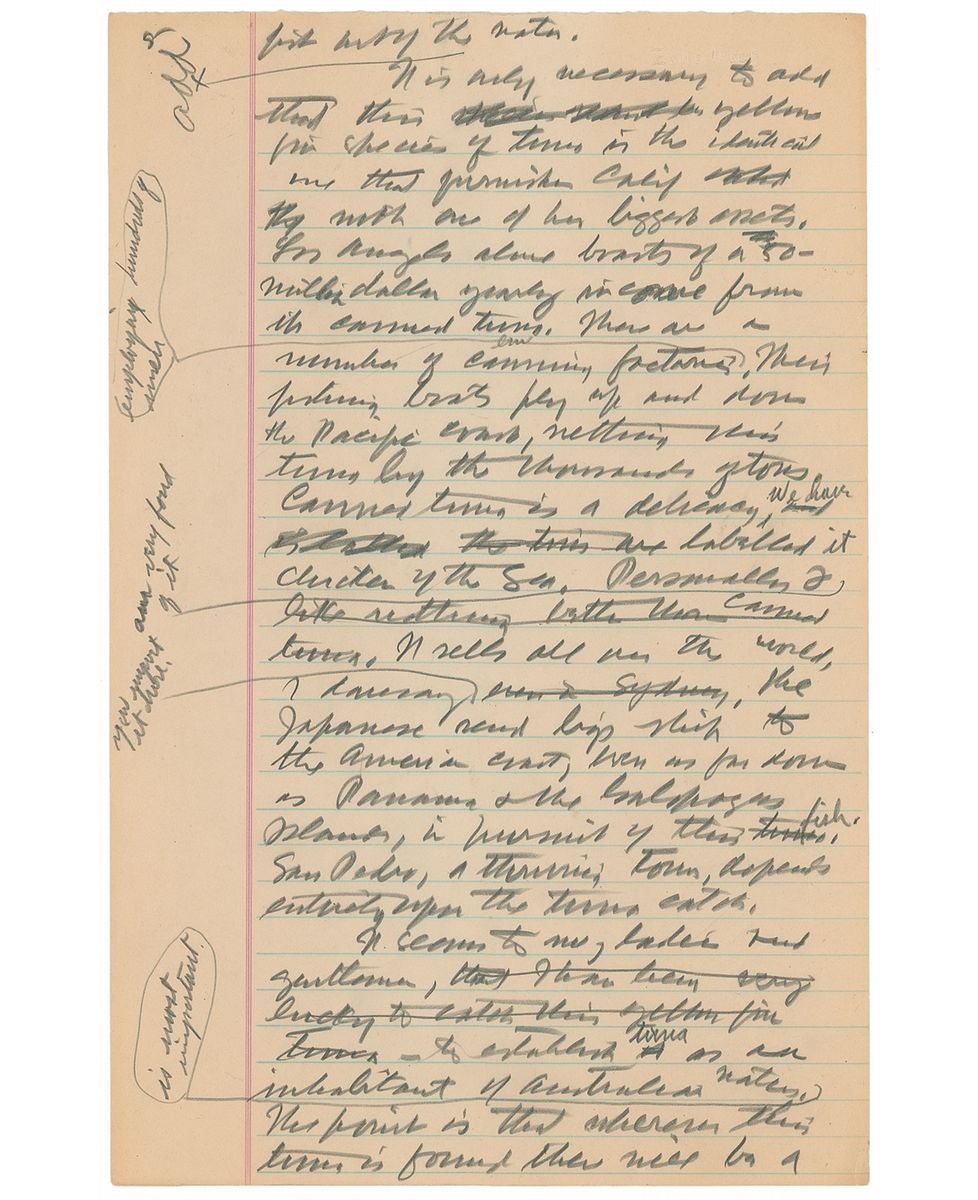 fish out of the water.
It is only necessary to add
that this yellow
fin species of tuna is the identical
one that furnishes Calif
with one of her biggest assets.
Los Angeles alone boasts of a 30-
million dollar yearly income from
its canned tuna. There are a
number of canning factories, employing hundreds of
men. Their
fishing boats ply up and down
the Pacific coast, netting this
tuna by the thousands of tons
Canned tuna is a delicacy, and We have
the tuna are labelled it
Chicken of the Sea. Personally I
You import
it here.
am very fond
of it
like nothing better than canned
tuna. It sells all over the world,
I daresay, even in Sydney. The
Japanese send big ships to
the American coast, even as far down
as Panama & the Galapagos
Islands, in pursuit of this tuna. fish.
San Pedro, a thriving town, depends
entirely upon the tuna catch.
It seems to me, ladies and
gentlemen, that I have been very
lucky to catch this yellow fin
Tuna – to establish it tuna as an
inhabitant of Australian waters.
is most
important.
The point is that wherever this
tuna is found there will be a